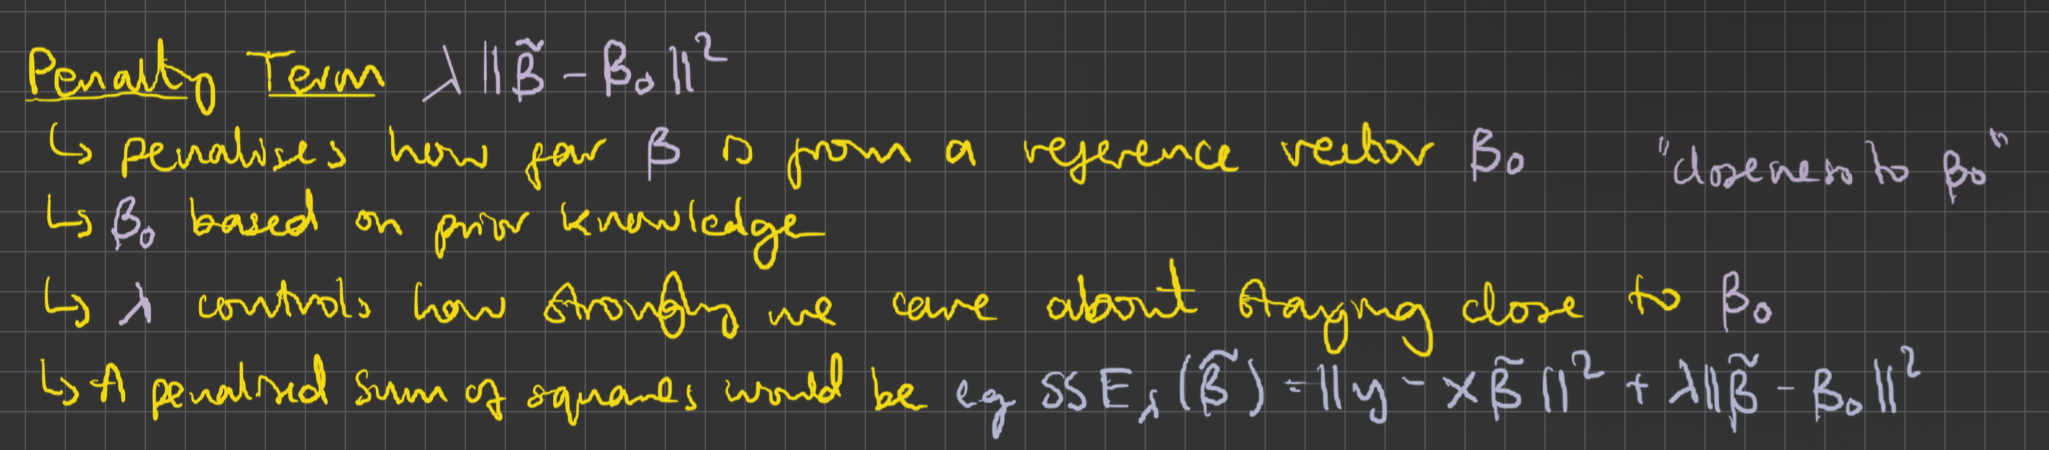 Penalty Term λ||β̃ - β₀||²
↳ penalises how far β is from a reference vector β₀ "closeness to β₀"
↳ β₀ based on prior knowledge
↳ λ controls how strongly we care about staying close to β₀
↳ A penalised sum of squares would be eg SSE_λ(β̃) = ||y - xβ̃||² + λ||β̃ - β₀||²